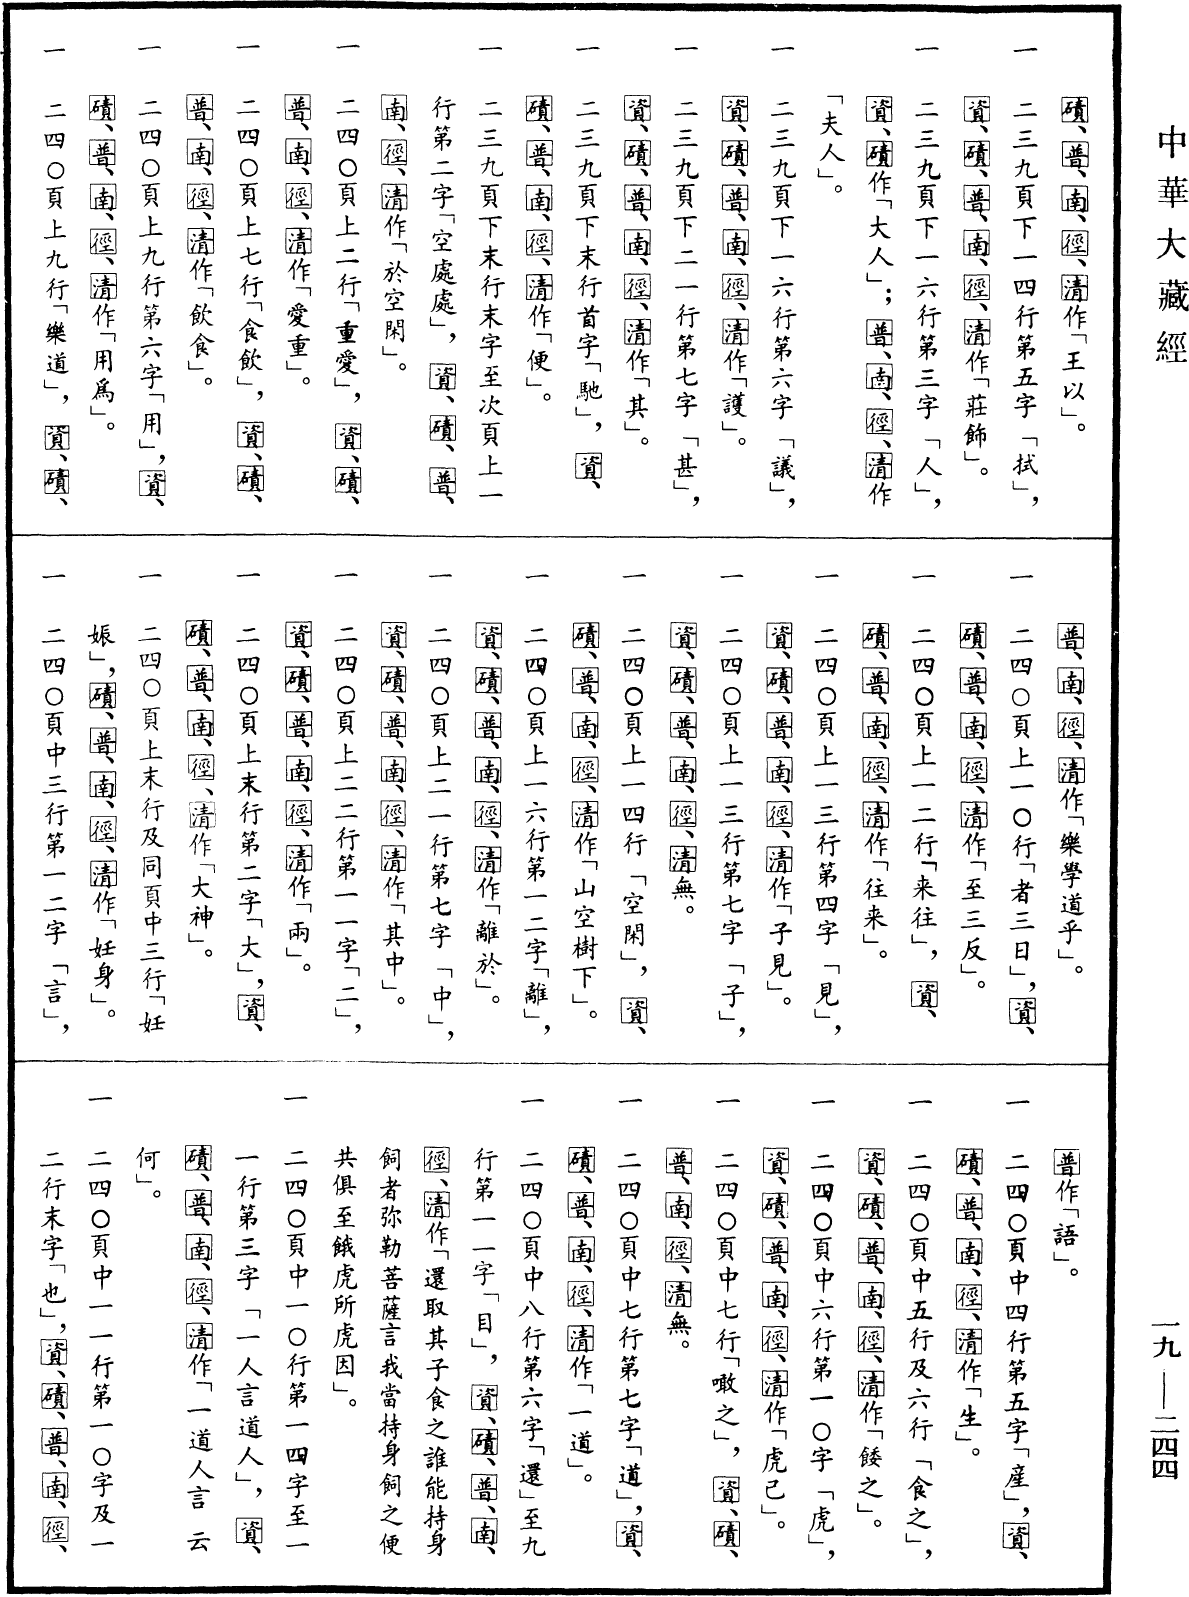 中華大藏經
磧、普、南、徑、清作「王以」。
一　二三九頁下一四行第五字「拭」，
資、磧、普、南、徑、清作「莊飾」。
一　二三九頁下一六行第三字「人」，
資、磧作「大人」；普、南、徑、清作
「夫人」。
一　二三九頁下一六行第六字「議」，
資、磧、普、南、徑、清作「護」。
一　二三九頁下二一行第七字「甚」，
資、磧、普、南、徑、清作「其」。
一　二三九頁下末行首字「馳」，資、
磧、普、南、徑、清作「便」。
一　二三九頁下末行末字至次頁上一
行第二字「空處處」，資、磧、普、
南、徑、清作「於空閑」。
一　二四〇頁上二行「重愛」，資、磧、
普、南、徑、清作「愛重」。
一　二四〇頁上七行「食飲」，資、磧、
普、南、徑、清作「飲食」。
一　二四〇頁上九行第六字「用」，資、
磧、普、南、徑、清作「用爲」。
一　二四〇頁上九行「樂道」，資、磧、
普、南、徑、清作「樂學道乎」。
一　二四〇頁上一〇行「者三日」，資、
磧、普、南、徑、清作「至三反」。
一　二四〇頁上一二行「来往」，資、
磧、普、南、徑、清作「往来」。
一　二四〇頁上一三行第四字「見」，
資、磧、普、南、徑、清作「子見」。
一　二四〇頁上一三行第七字「子」，
資、磧、普、南、徑、清無。
一　二四〇頁上一四行「空閑」，資、
磧、普、南、徑、清作「山空樹下」。
一　二四〇頁上一六行第一二字「離」，
資、磧、普、南、徑、清作「離於」。
一　二四〇頁上二一行第七字「中」，
資、磧、普、南、徑、清作「其中」。
一　二四〇頁上二二行第一一字「二」，
資、磧、普、南、徑、清作「兩」。
一　二四〇頁上末行第二字「大」，資、
磧、普、南、徑、清作「大神」。
一　二四〇頁上末行及同頁中三行「妊
娠」，磧、普、南、徑、清作「妊身」。
一　二四〇頁中三行第一二字「言」，
普作「語」。
一　二四〇頁中四行第五字「産」，資、
磧、普、南、徑、清作「生」。
一　二四〇頁中五行及六行「食之」，
資、磧、普、南、徑、清作「餧之」。
一　二四〇頁中六行第一〇字「虎」，
資、磧、普、南、徑、清作「虎已」。
一　二四〇頁中七行「噉之」，資、磧、
普、南、徑、清無。
一　二四〇頁中七行第七字「道」，資、
磧、普、南、徑、清作「一道」。
一　二四〇頁中八行第六字「還」至九
行第一一字「目」，資、磧、普、南、
徑、清作「還取其子食之誰能持身
飼者弥勒菩薩言我當持身飼之便
共俱至餓虎所虎因」。
一　二四〇頁中一〇行第一四字至一
一行第三字「一人言道人」，資、
磧、普、南、徑、清作「一道人言　云
何」。
一　二四〇頁中一一行第一〇字及一
二行末字「也」，資、磧、普、南、徑、
一九——二四四